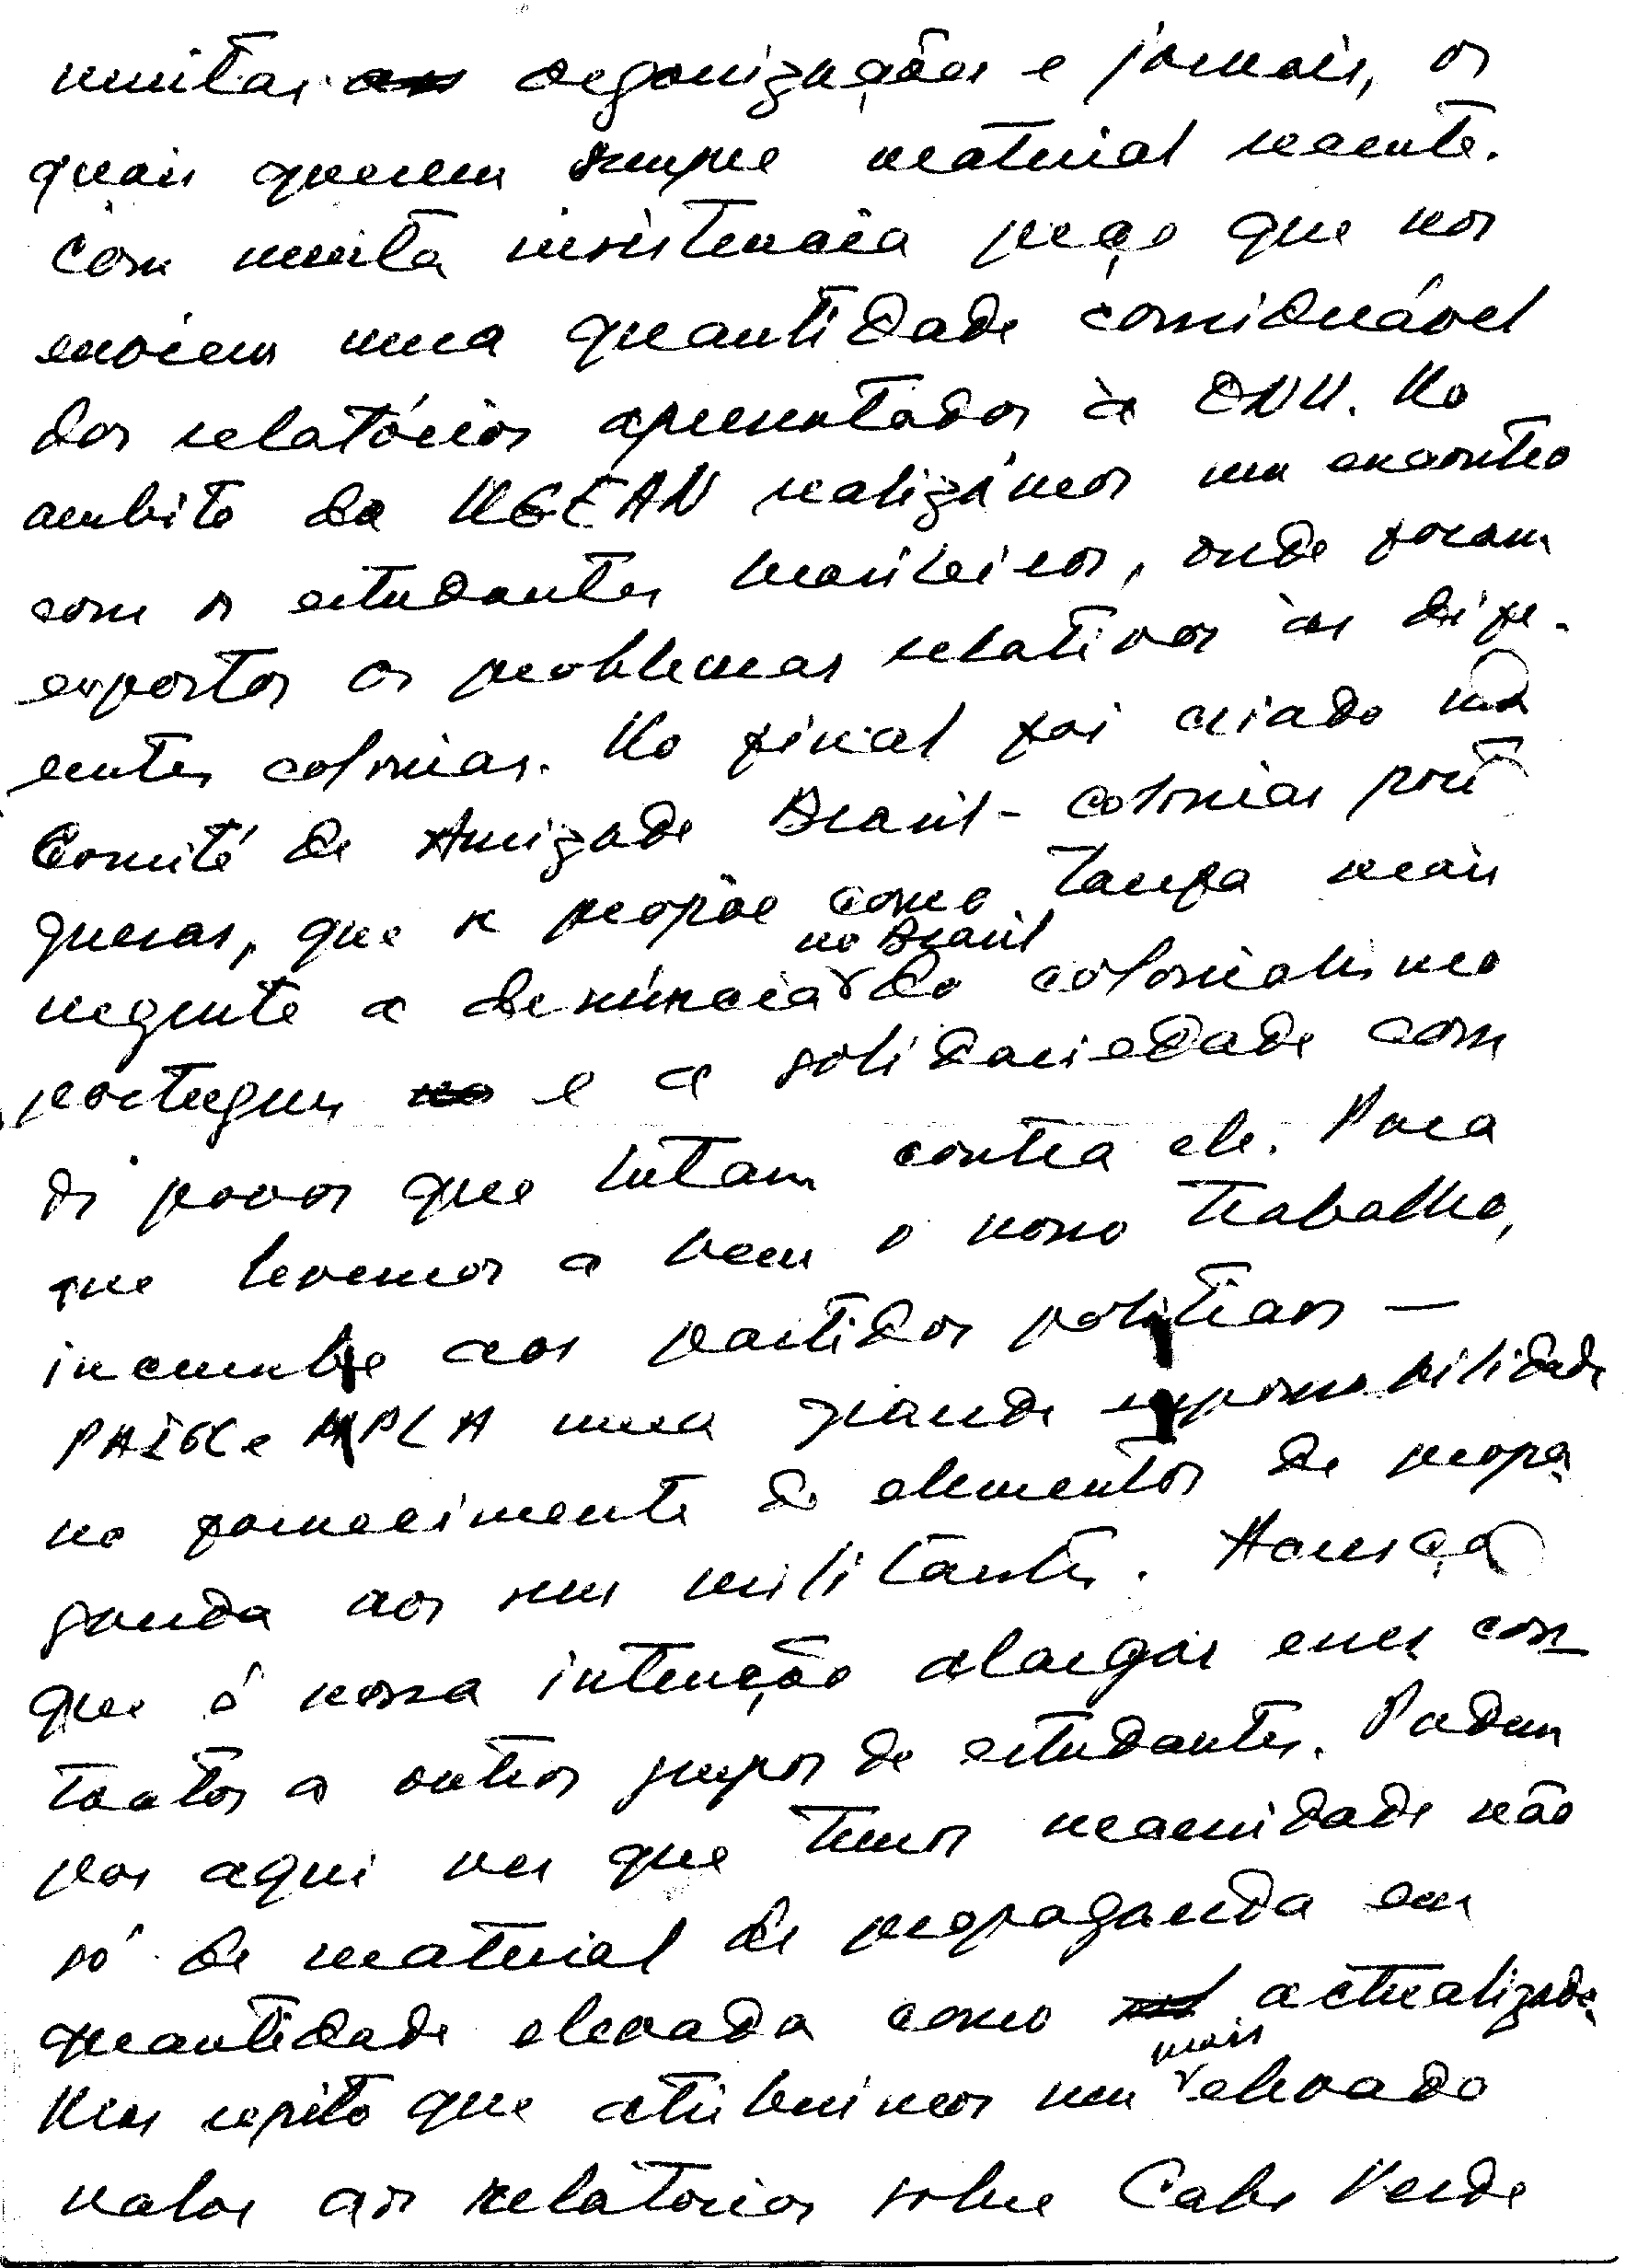 muitas organizações e jornais, os
quais querem sempre material recente.
Com muita insistencia peço que nos
enviem uma quantidade considerável
dos relatórios apresentados à ONU. No
ambito da UGEAN realizámos um encontro
com os estudantes brasileiros, onde foram
expostos os problemas relativos às dife-
rentes colonias. No final foi criado um
Comité de Amizade Brasil - colonias portu
guesas, que se propõe como tarefa mais
urgente a denúncia no Brasil do colonialismo
portugues e a solidariedade com
os povos que lutam contra ele. Para
que levemos a bem o nosso trabalho,
incumbe aos partidos politicos —
PAIGC e MPLA uma grande responsabilidade
no fornecimento de elementos de propa
ganda aos seus militantes. Acresça
que é nossa intenção alargar esses con
tactos a outros grupos de estudantes. Podem
por aqui ver que temos necessidade não
só de material de propaganda em
quantidade elevada como actualizado.
Mas repito que atribuimos um mais elevado
valor aos relatorios sobre Cabo Verde